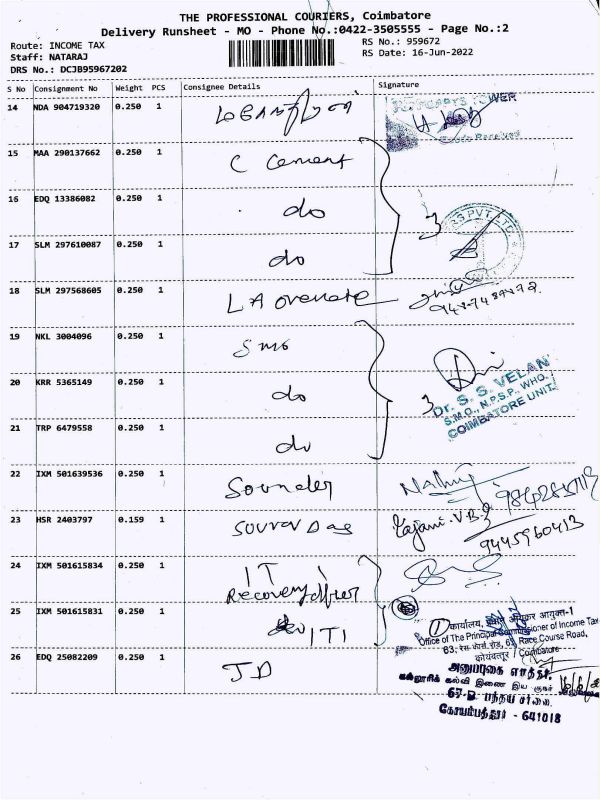 THE PROFESSIONAL COURIERS, Coimbatore
Delivery Runsheet - MO - Phone No.:0422-3505555 - Page No.:2
Route: INCOME TAX
RS No.: 959672
Staff: NATARAJ
RS Date: 16-Jun-2022
DRS No.: DCJB95967202
S No Consignment No Weight PCS Consignee Details Signature
14 NDA 904719320 0.250 1
15 MAA 290137662 0.250 1 C Cement
16 EDQ 13386082 0.250 1 do
3
17 SLM 297610087 0.250 1 do
18 SLM 297568605 0.250 1 LA
19 NKL 3004096 0.250 1 SMO
20 KRR 5365149 0.250 1 do
3
Dr. S. S. VELAN
S.M.O., N.P.S.P., WHO.
COIMBATORE UNIT.
21 TRP 6479558 0.250 1 do
22 IXM 501639536 0.250 1 Sounder
23 HSR 2403797 0.159 1 Sourav Das
Rajani.V.B.
9445960413
24 IXM 501615834 0.250 1 IT
Recovery officer
25 IXM 501615831 0.250 1 ITI
कार्यालय, आयकर आयुक्त-1
Office of The Principal Commissioner of Income Tax
63, रेस कोर्स रोड, 63, Race Course Road,
कोयंबत्तूर / Coimbatore
26 EDQ 25082209 0.250 1 JD
கல்லூரிக் கல்வி இணை இய
67-D பந்தய சாலை
கோயம்புத்தூர் - 641018